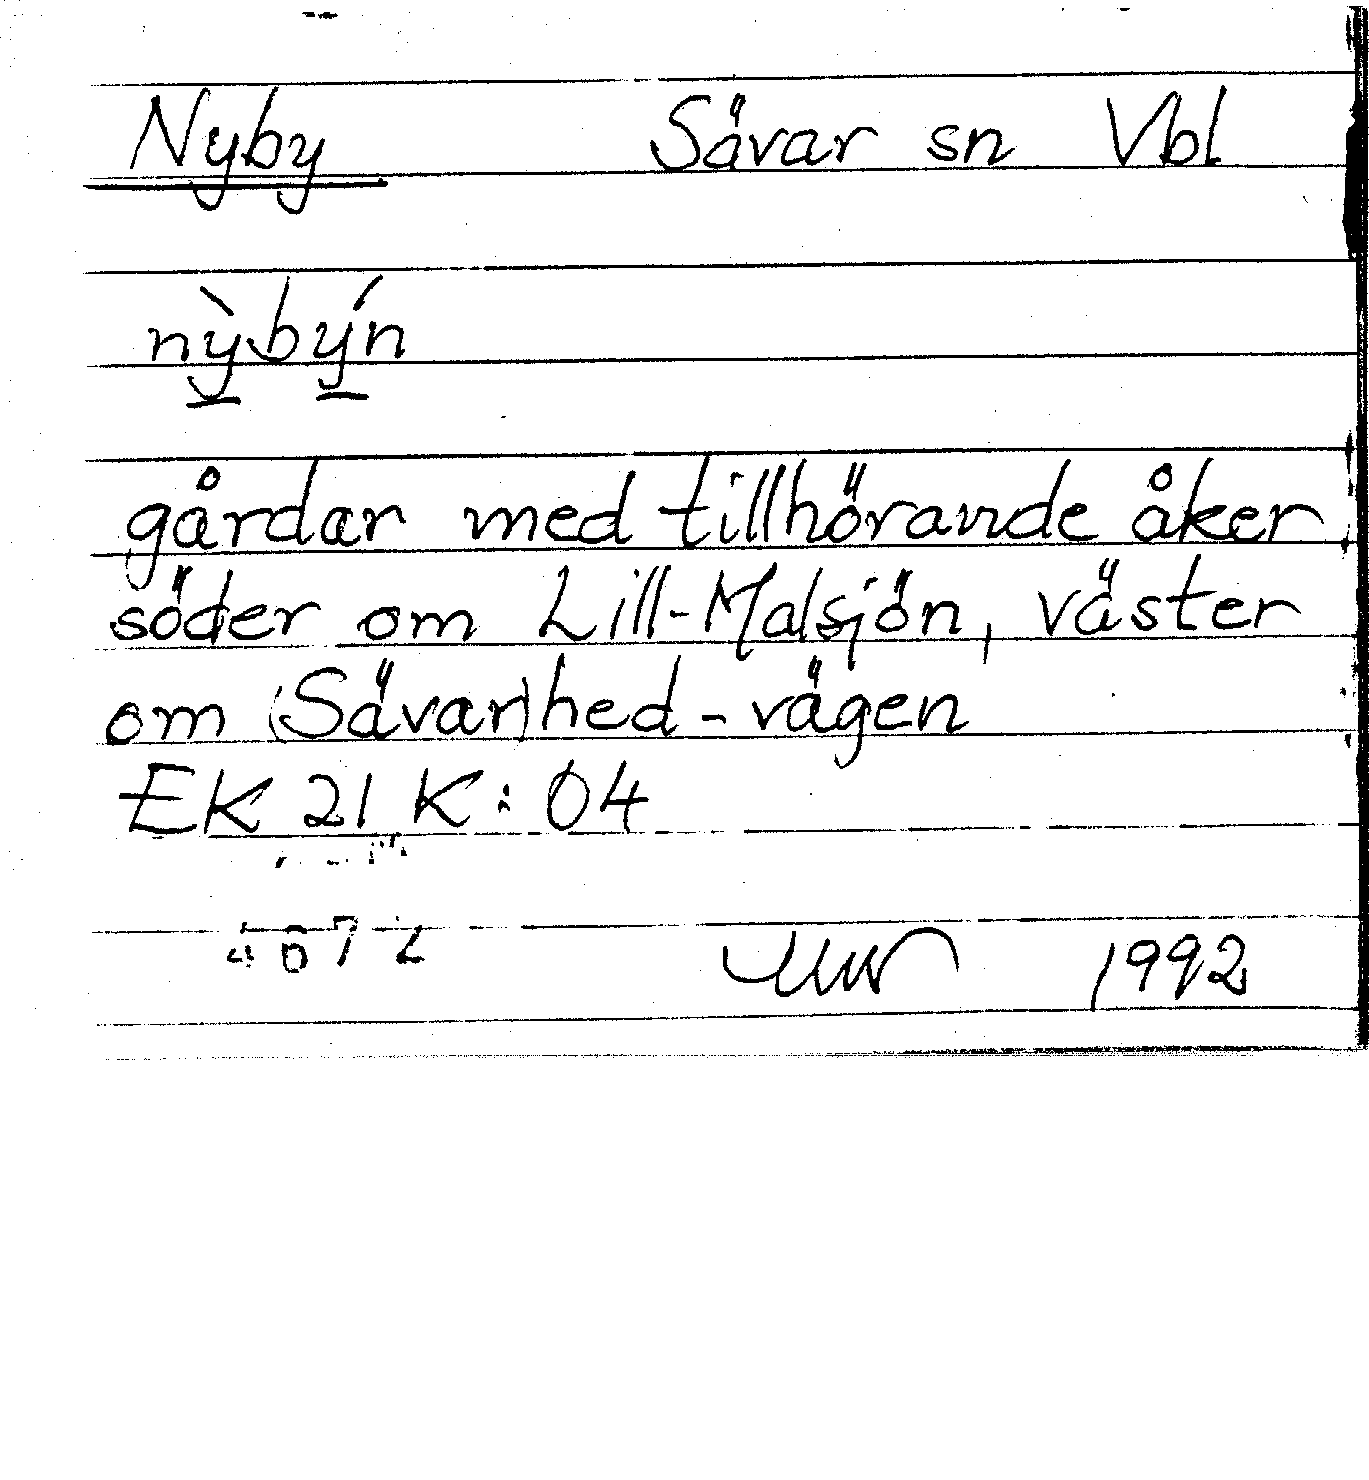 Nyby Sävar sn Vbl
nỳbýn
gårdar med tillhörande åker
söder om Lill-Malsjön, väster
om (Sävar)hed-vägen
EK 21 K:04
1992